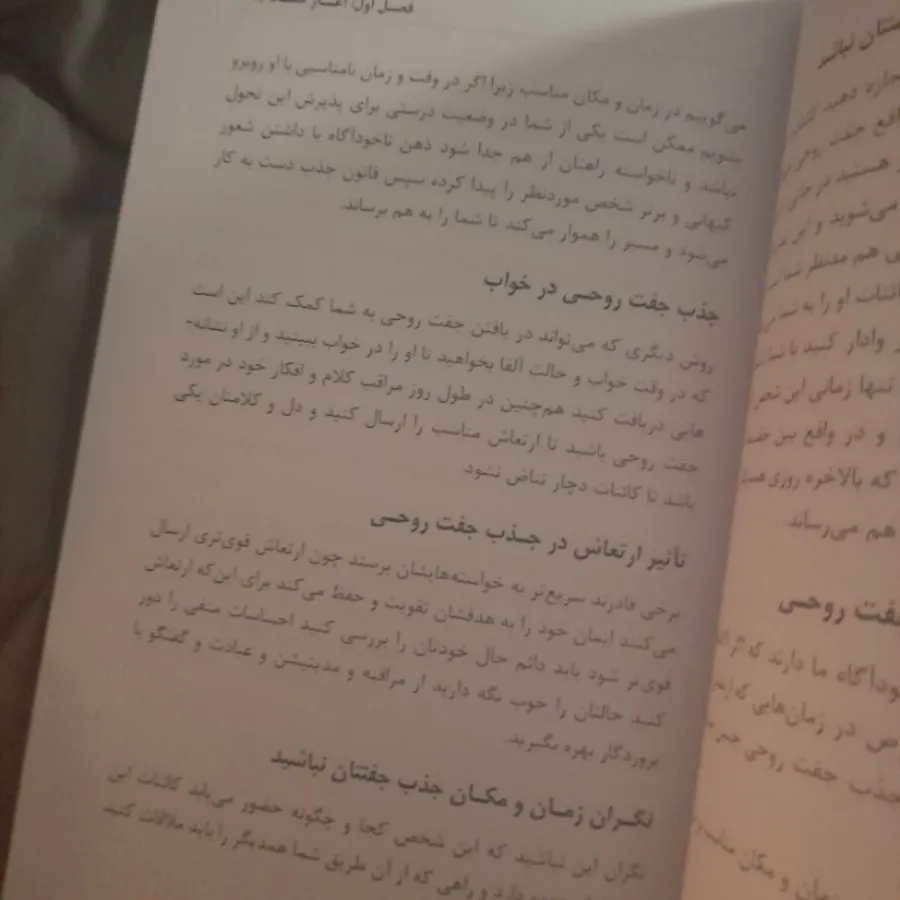 فصل اول:
می‌گوییم در زمان و مکان مناسب زیرا اگر در وقت و زمان نامناسبی با او روبرو
بشویم ممکن است یکی از شما در وضعیت درستی برای پذیرش این تحول
نباشد و ناخواسته راهتان از هم جدا شود ذهن ناخودآگاه با داشتن شعور
کیهانی و برتر شخص موردنظر را پیدا کرده سپس قانون جذب دست به کار
می‌شود و مسیر را هموار می‌کند تا شما را به هم برساند.
جذب جفت روحی در خواب
روش دیگری که می‌تواند در یافتن جفت روحی به شما کمک کند این است
که در وقت خواب و حالت آلفا بخواهید تا او را در خواب ببینید و از او نشانه-
هایی دریافت کنید هم‌چنین در طول روز مراقب کلام و افکار خود در مورد
جفت روحی باشید تا ارتعاش مناسب را ارسال کنید و دل و کلامتان یکی
باشد تا کائنات دچار تناض نشود.
تأثیر ارتعاش در جذب جفت روحی
برخی قادرند سریع‌تر به خواسته‌هایشان برسند چون ارتعاش قوی‌تری ارسال
می‌کنند ایمان خود را به هدفشان تقویت و حفظ می‌کند برای این‌که ارتعاش
قوی‌تر شود باید دائم حال خودتان را بررسی کنید احساسات منفی را دور
کنید حالتان را خوب نگه دارید از مراقبه و مدیتیشن و عبادت و گفتگو با
پروردگار بهره بگیرید.
نگران زمان و مکان جذب جفتتان نباشید
نگران این نباشید که این شخص کجا و چگونه حضور می‌یابد کائنات این
دارد و راهی که از آن طریق شما همدیگر را باید ملاقات کنید
نباشید
اجازه دهید
جفت روحی
هستید در
می‌شوید و این
هم مدنظر شما
کائنات او را به شما
وادار کنید با شما
تنها زمانی این
و در واقع بین
که بالاخره روزی
هم می‌رساند.
جفت روحی
ما دارند که اگر
در زمان‌هایی که
جذب جفت روحی
زمان و مکان مناسب